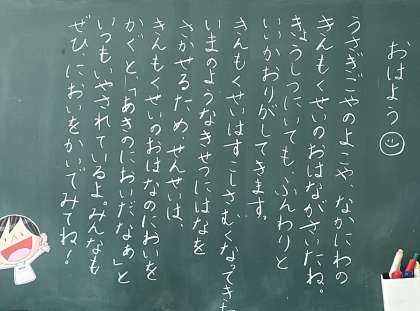 おはよう
うさぎごやのよこや、なかにわの
きんもくせいのおはながさいたね。
きょうしつにいても、ふんわりと
いいかおりがしてきます。
きんもくせいはすこしさむくなってきた
いまのようなきせつにはなを
さかせるため せんせいは、
きんもくせいのおはなのにおいを
かぐと「あきのにおいだなぁ」と
いつもいやされているよ。みんなも
ぜひ においをかいでみてね！